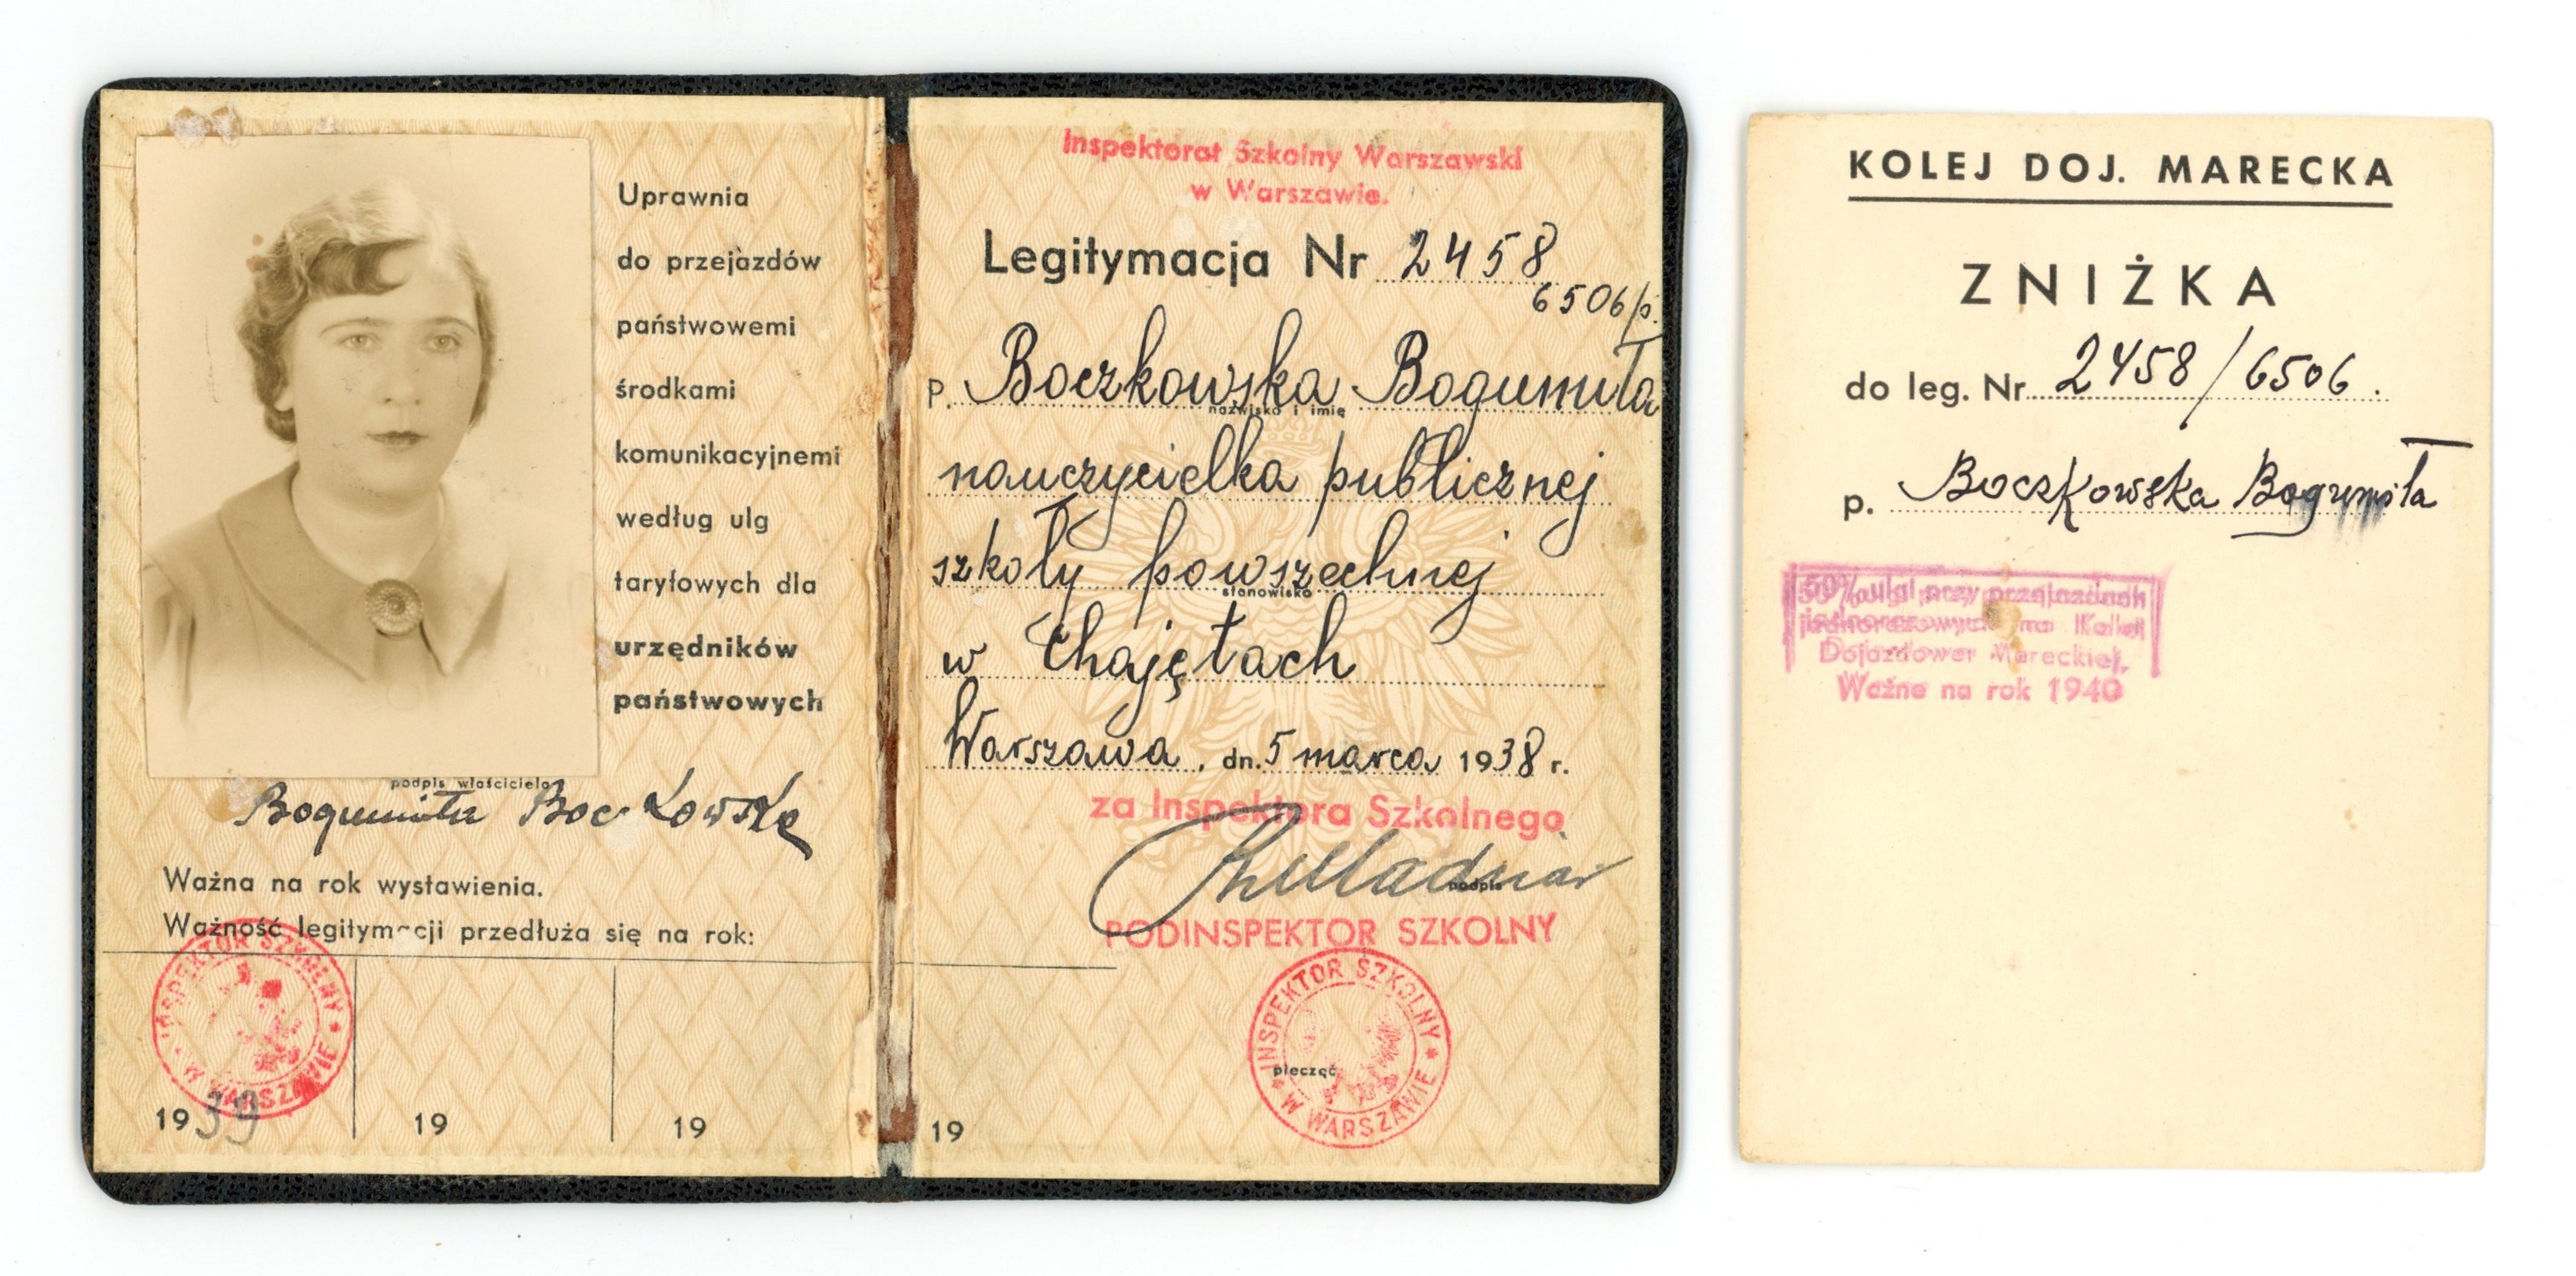 Uprawnia
do przejazdów
państwowemi
środkami
komunikacyjnemi
według ulg
taryfowych dla
urzędników
państwowych
podpis właściciela
Bogumiła Boczkowska
Ważna na rok wystawienia.
Ważność legitymacji przedłuża się na rok:
INSPEKTOR SZKOLNY * W WARSZAWIE *
1939
19
19
Inspektorat Szkolny Warszawski
w Warszawie.
Legitymacja Nr 2458
6506/p.
P. Boczkowska Bogumiła
nazwisko i imię
nauczycielka publicznej
szkoły powszechnej
stanowisko
w Chajętach
Warszawa, dn. 5 marca 1938 r.
za Inspektora Szkolnego
podpis
PODINSPEKTOR SZKOLNY
INSPEKTOR SZKOLNY * W WARSZAWIE *
pieczęć
19
KOLEJ DOJ. MARECKA
ZNIŻKA
do leg. Nr 2458/6506.
p. Boczkowska Bogumiła
50% ulgi przy przejazdach
jednorazowych na Kolei
Dojazdowej Mareckiej.
Ważne na rok 1940